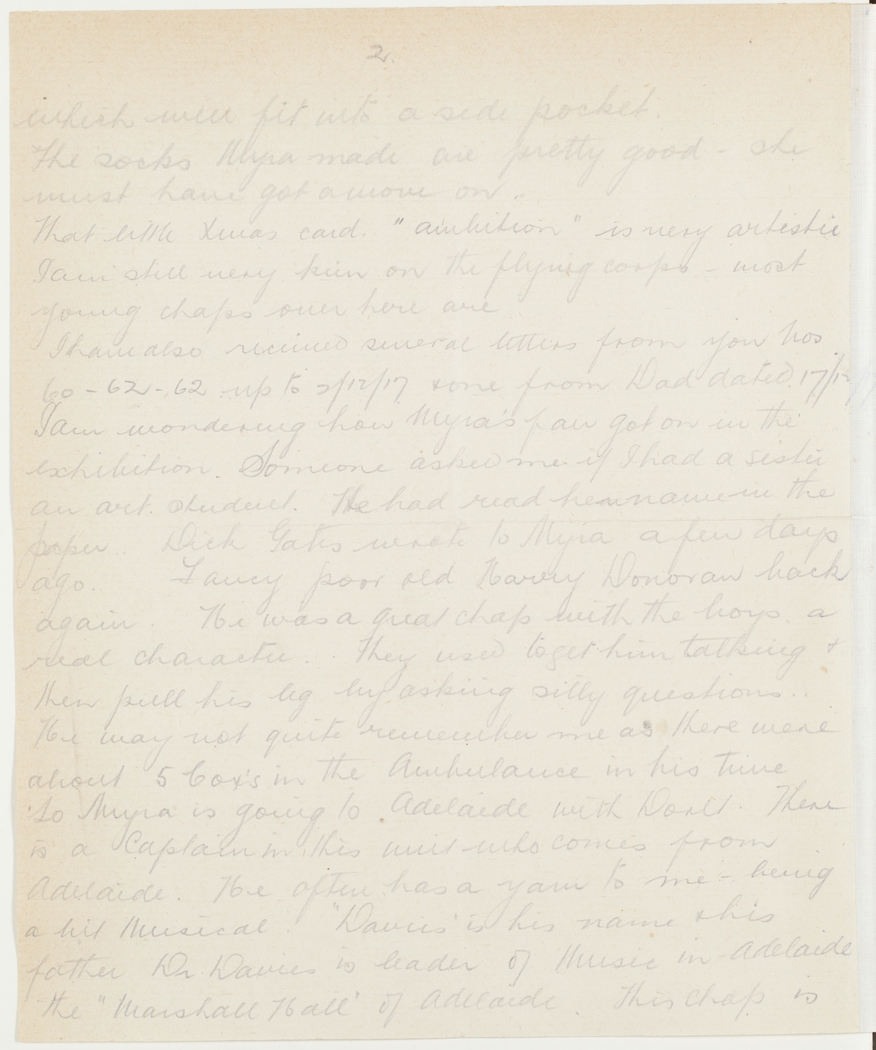 2.
which will fit into a side pocket.
The socks Myra made are pretty good - she
must have got a move on.
That little Xmas card. "ambition" is very artistic
I am still very keen on the flying corps - most
young chaps over here are
I have also received several letters from you Nos
60 - 62 - 62 up to 2/12/17 & one from Dad dated 17/12
I am wondering how Myra's fan got on in the
exhibition. Someone asked me if I had a sister
an art student. He had read her name in the
paper. Dick Gates wrote to Myra a few days
ago. Fancy poor old Harry Donovan back
again. He was a great chap with the boys. a
real character. They used to get him talking &
then pull his leg by asking silly questions..
He may not quite remember me as there were
about 5 Cox's in the Ambulance in his time
So Myra is going to Adelaide with There
is a Captain in this unit who comes from
Adelaide. He often has a yarn to me - being
a bit Musical. "Davies" is his name & his
father Dr Davies is leader of Music in Adelaide
the "Marshall Hall" of Adelaide. This chap is